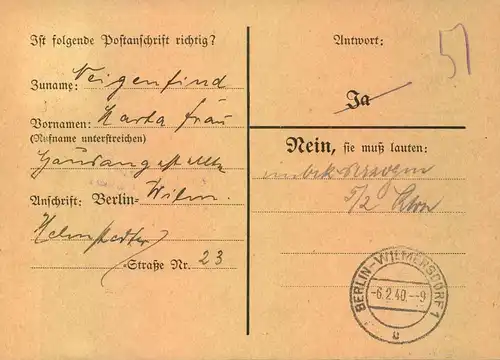 Ist folgende Postanschrift richtig?
Zuname: Neigenfind
Vornamen: Marta Frau
(Rufname unterstreichen)
Anschrift: Berlin-Wilm.
Helmstedter
-Straße Nr. 23
Antwort:
51
Ja
Nein, sie muß lauten:
unbek. verzogen
5/2
BERLIN-WILMERSDORF 1
-6.2.40.--9